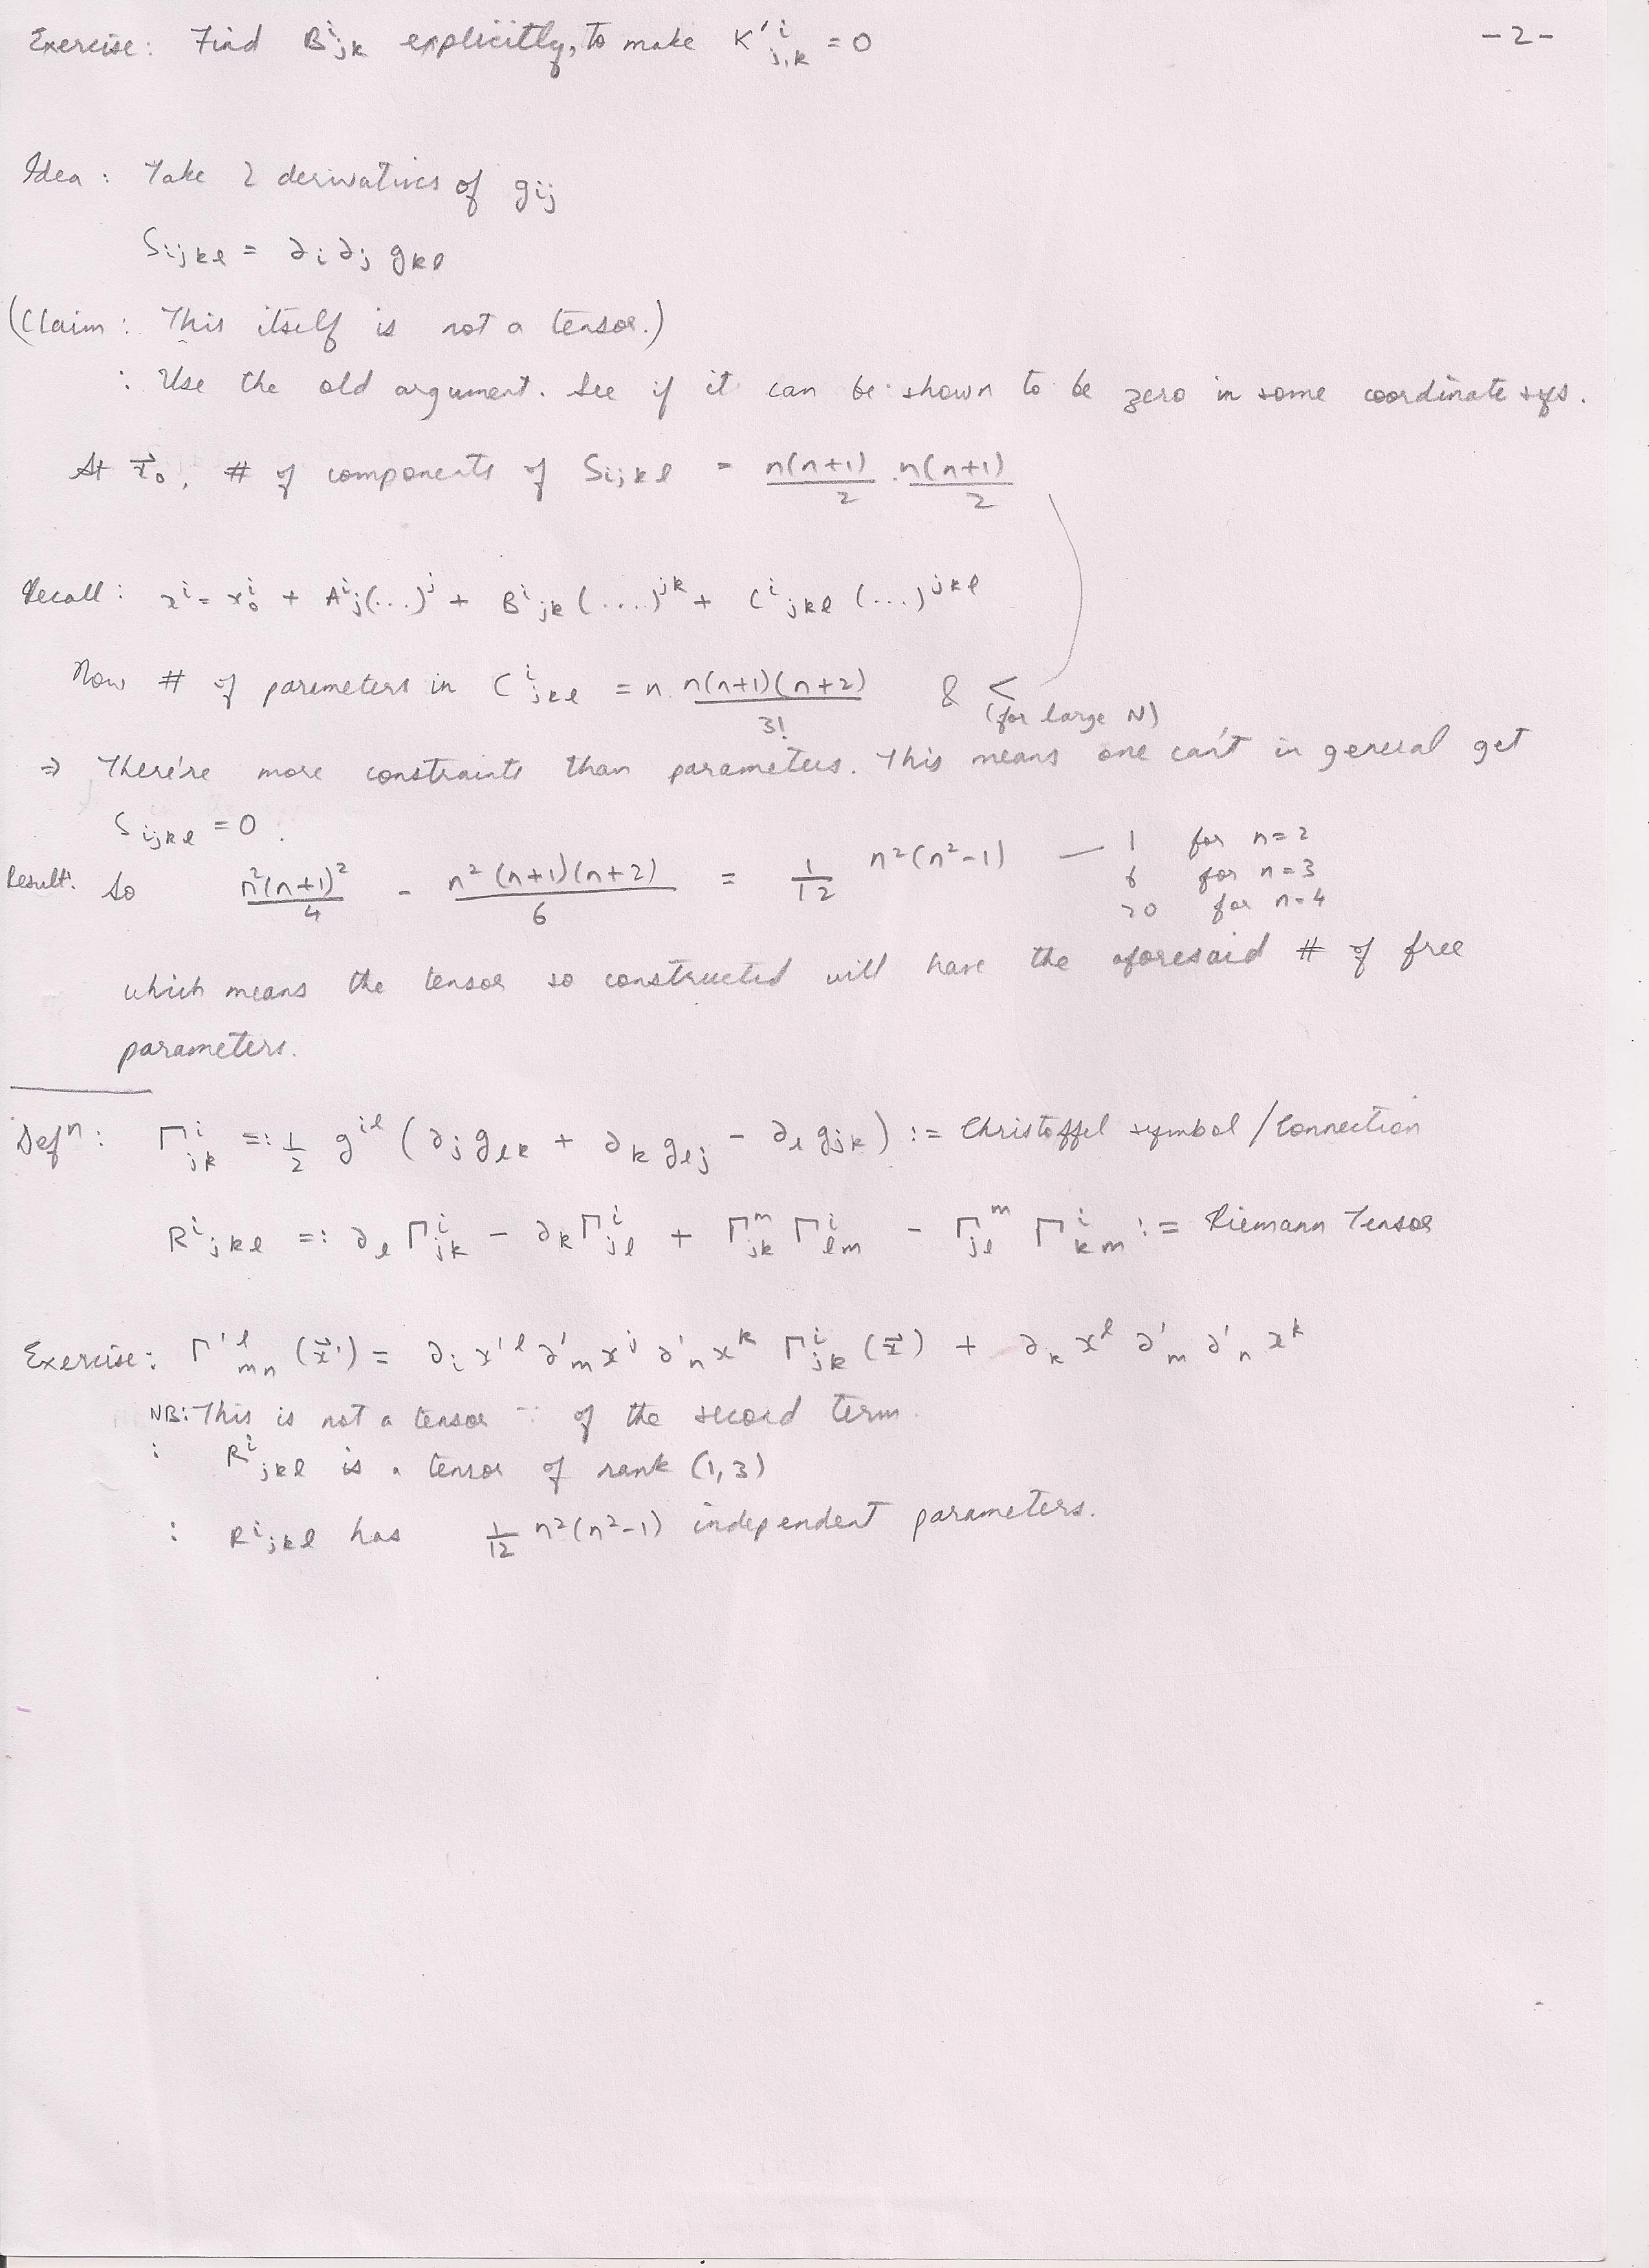 Exercise: Find B^i_jk explicitly, to make K'^i_j,k = 0
-2-
Idea: Take 2 derivatives of g_ij
S_ijkl = ∂_i ∂_j g_kl
(Claim: This itself is not a tensor.)
: Use the old argument. See if it can be shown to be zero in some coordinate sys.
At x⃗_0, # of components of S_ijkl = n(n+1)/2 . n(n+1)/2
Recall: x^i = x^i_0 + A^i_j(...)^j + B^i_jk(....)^jk + C^i_jkl(...)^jkl
Now # of parameters in C^i_jkl = n. n(n+1)(n+2)/3! & <
(for large N)
⇒ There're more constraints than parameters. This means one can't in general get
S_ijkl = 0.
Result: So n²(n+1)²/4 - n²(n+1)(n+2)/6 = 1/12 n²(n²-1) — 1 for n=2
6 for n=3
20 for n=4
which means the tensor so constructed will have the aforesaid # of free
parameters.
Defⁿ: Γ^i_jk =: 1/2 g^il (∂_j g_lk + ∂_k g_lj - ∂_l g_jk) := Christoffel symbol/Connection
R^i_jkl =: ∂_l Γ^i_jk - ∂_k Γ^i_jl + Γ^m_jk Γ^i_lm - Γ^m_jl Γ^i_km := Riemann Tensor
Exercise: Γ'^l_mn (x⃗') = ∂_i x'^l ∂'_m x^j ∂'_n x^k Γ^i_jk (x⃗) + ∂_k x^l ∂'_m ∂'_n x^k
NB: This is not a tensor ∵ of the second term.
: R^i_jkl is a tensor of rank (1,3)
: R^i_jkl has 1/12 n²(n²-1) independent parameters.